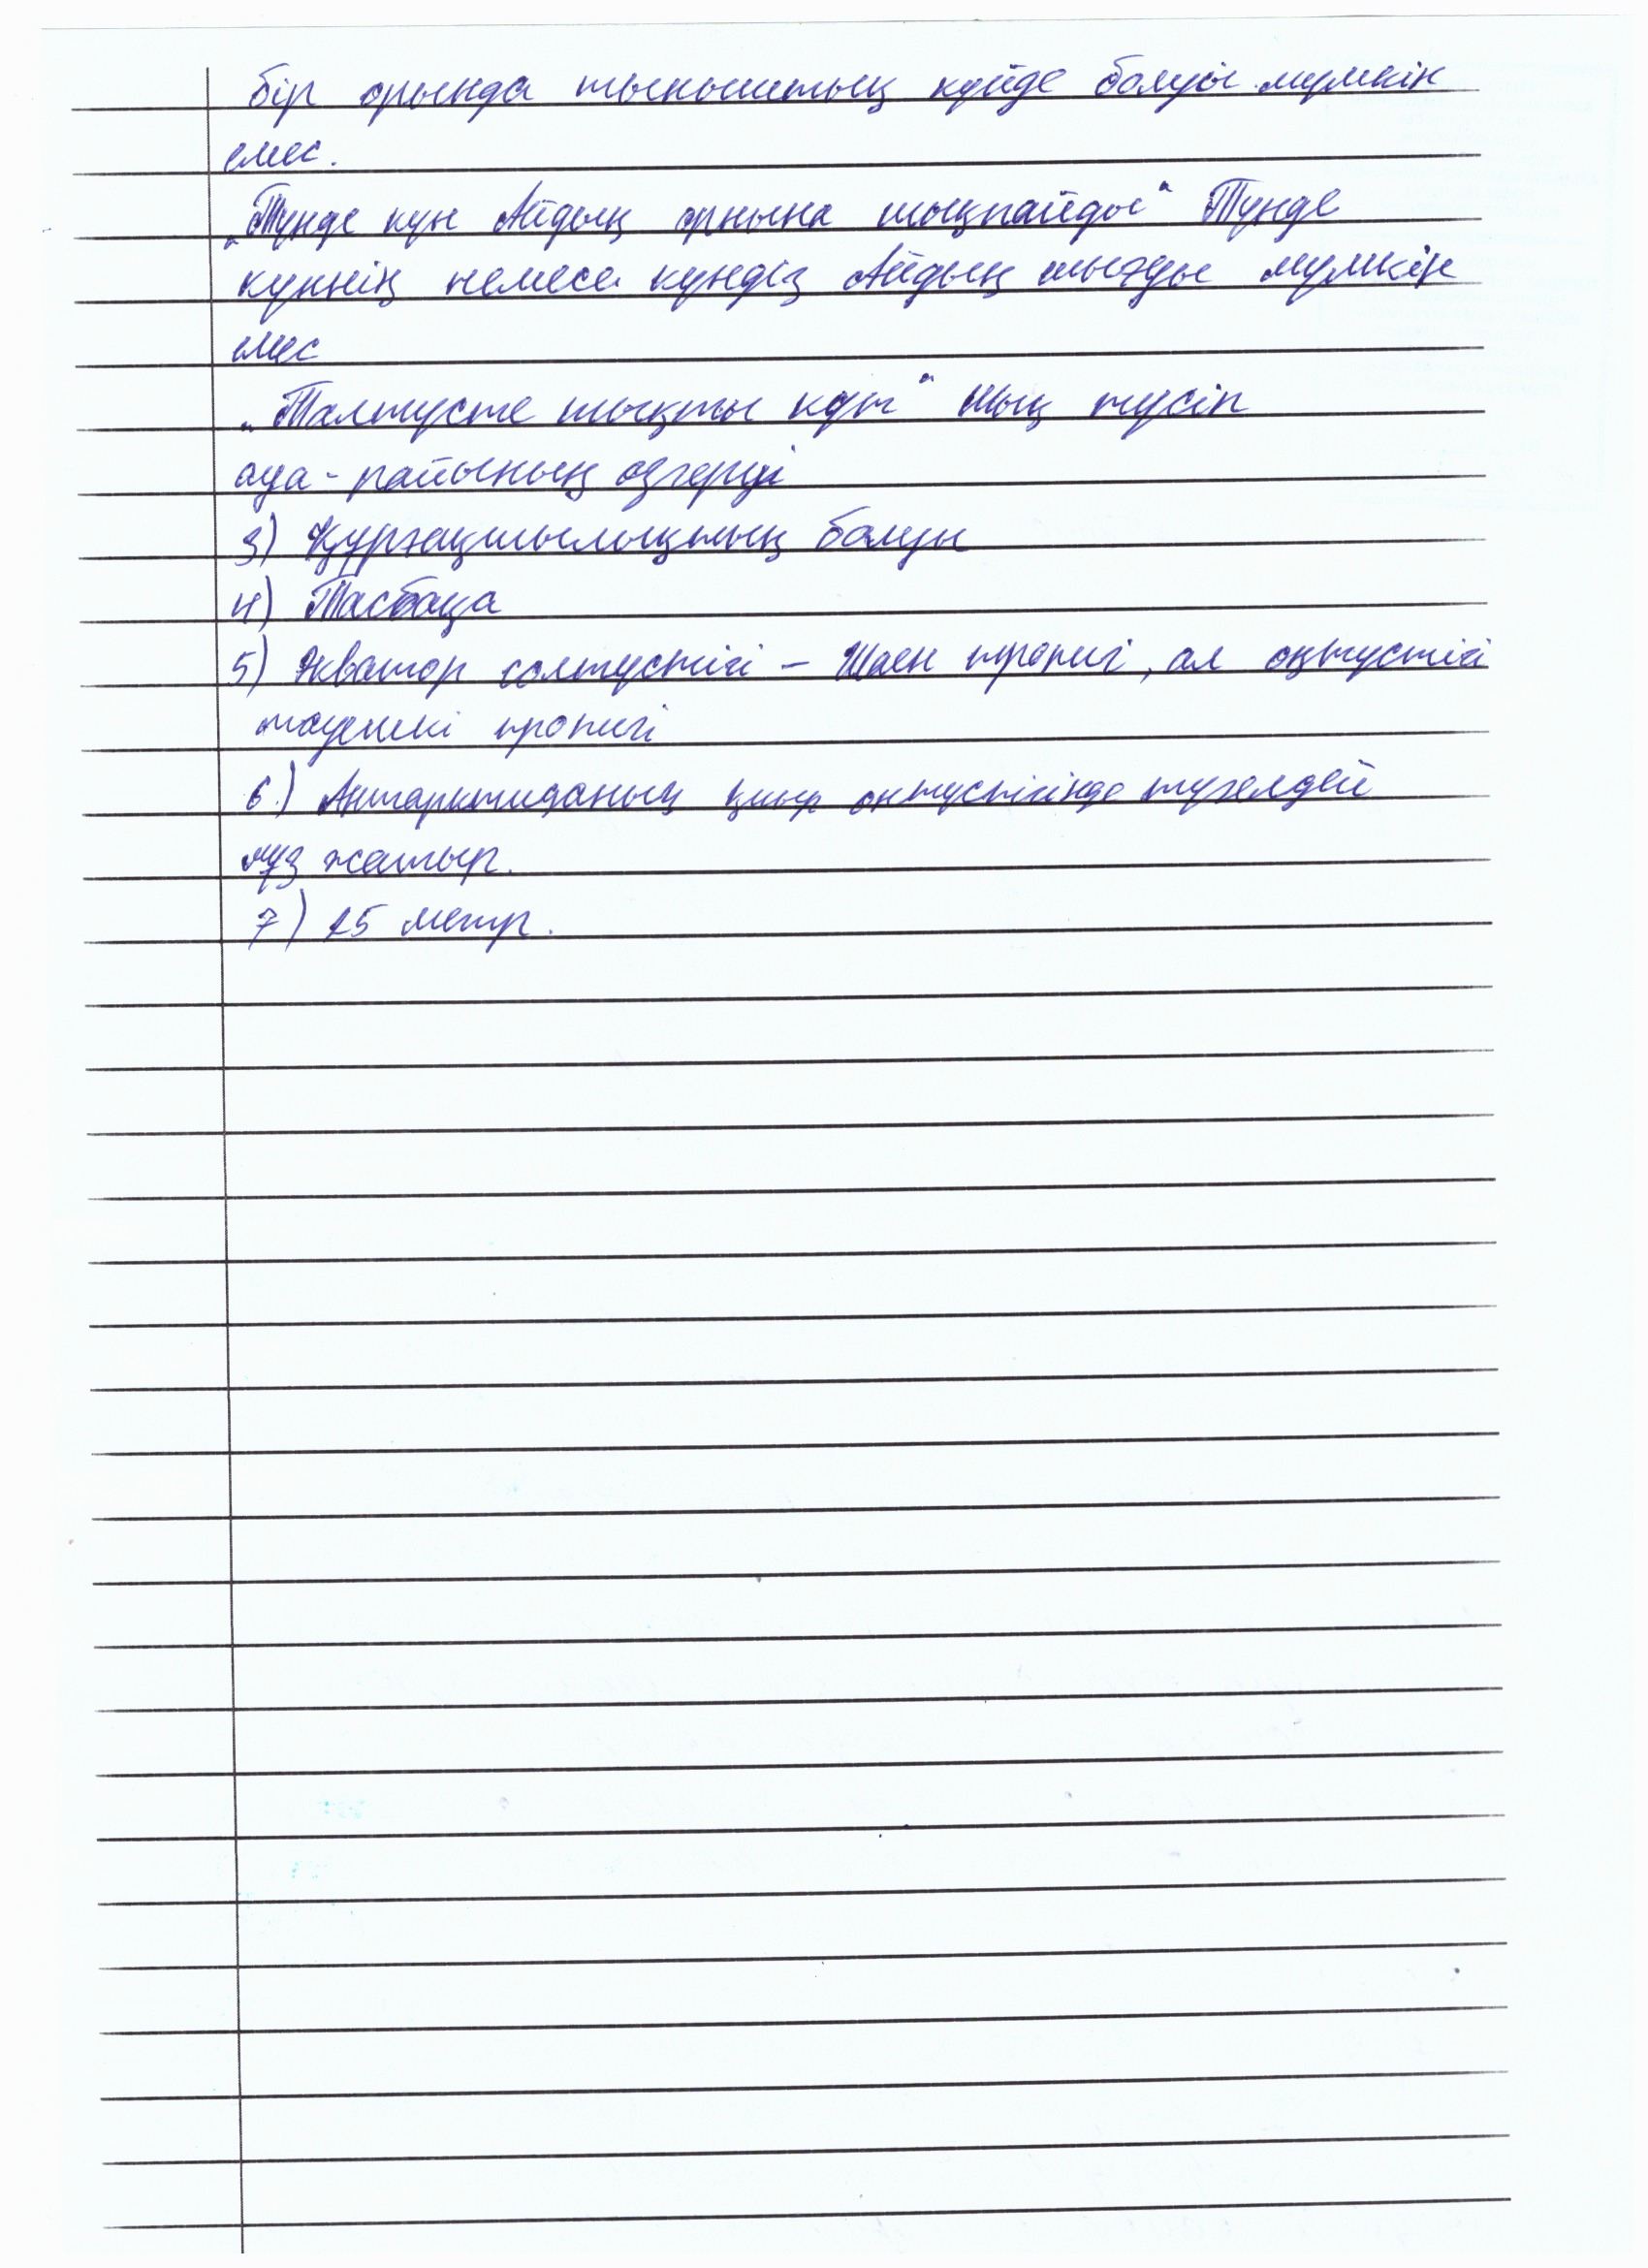 бір орында тыныштық күйде болуы мүмкін
емес.
„Түнде күн Айдың орнына шықпайды“ Түнде
күннің немесе күндіз Айдың шығуы мүмкін
емес
„Талтүсте шықты құт“ Шық түсіп
ауа-райының өзгеруі
3) Құрғақшылықтың болуы
4) Тасбақа
5) Экватор солтүстігі – Шаян тропигі, ал оңтүстігі
тауешкі тропигі
6) Антарктиданың қиыр оңтүстігінде түгелдей
мұз жатыр.
7) 15 метр.